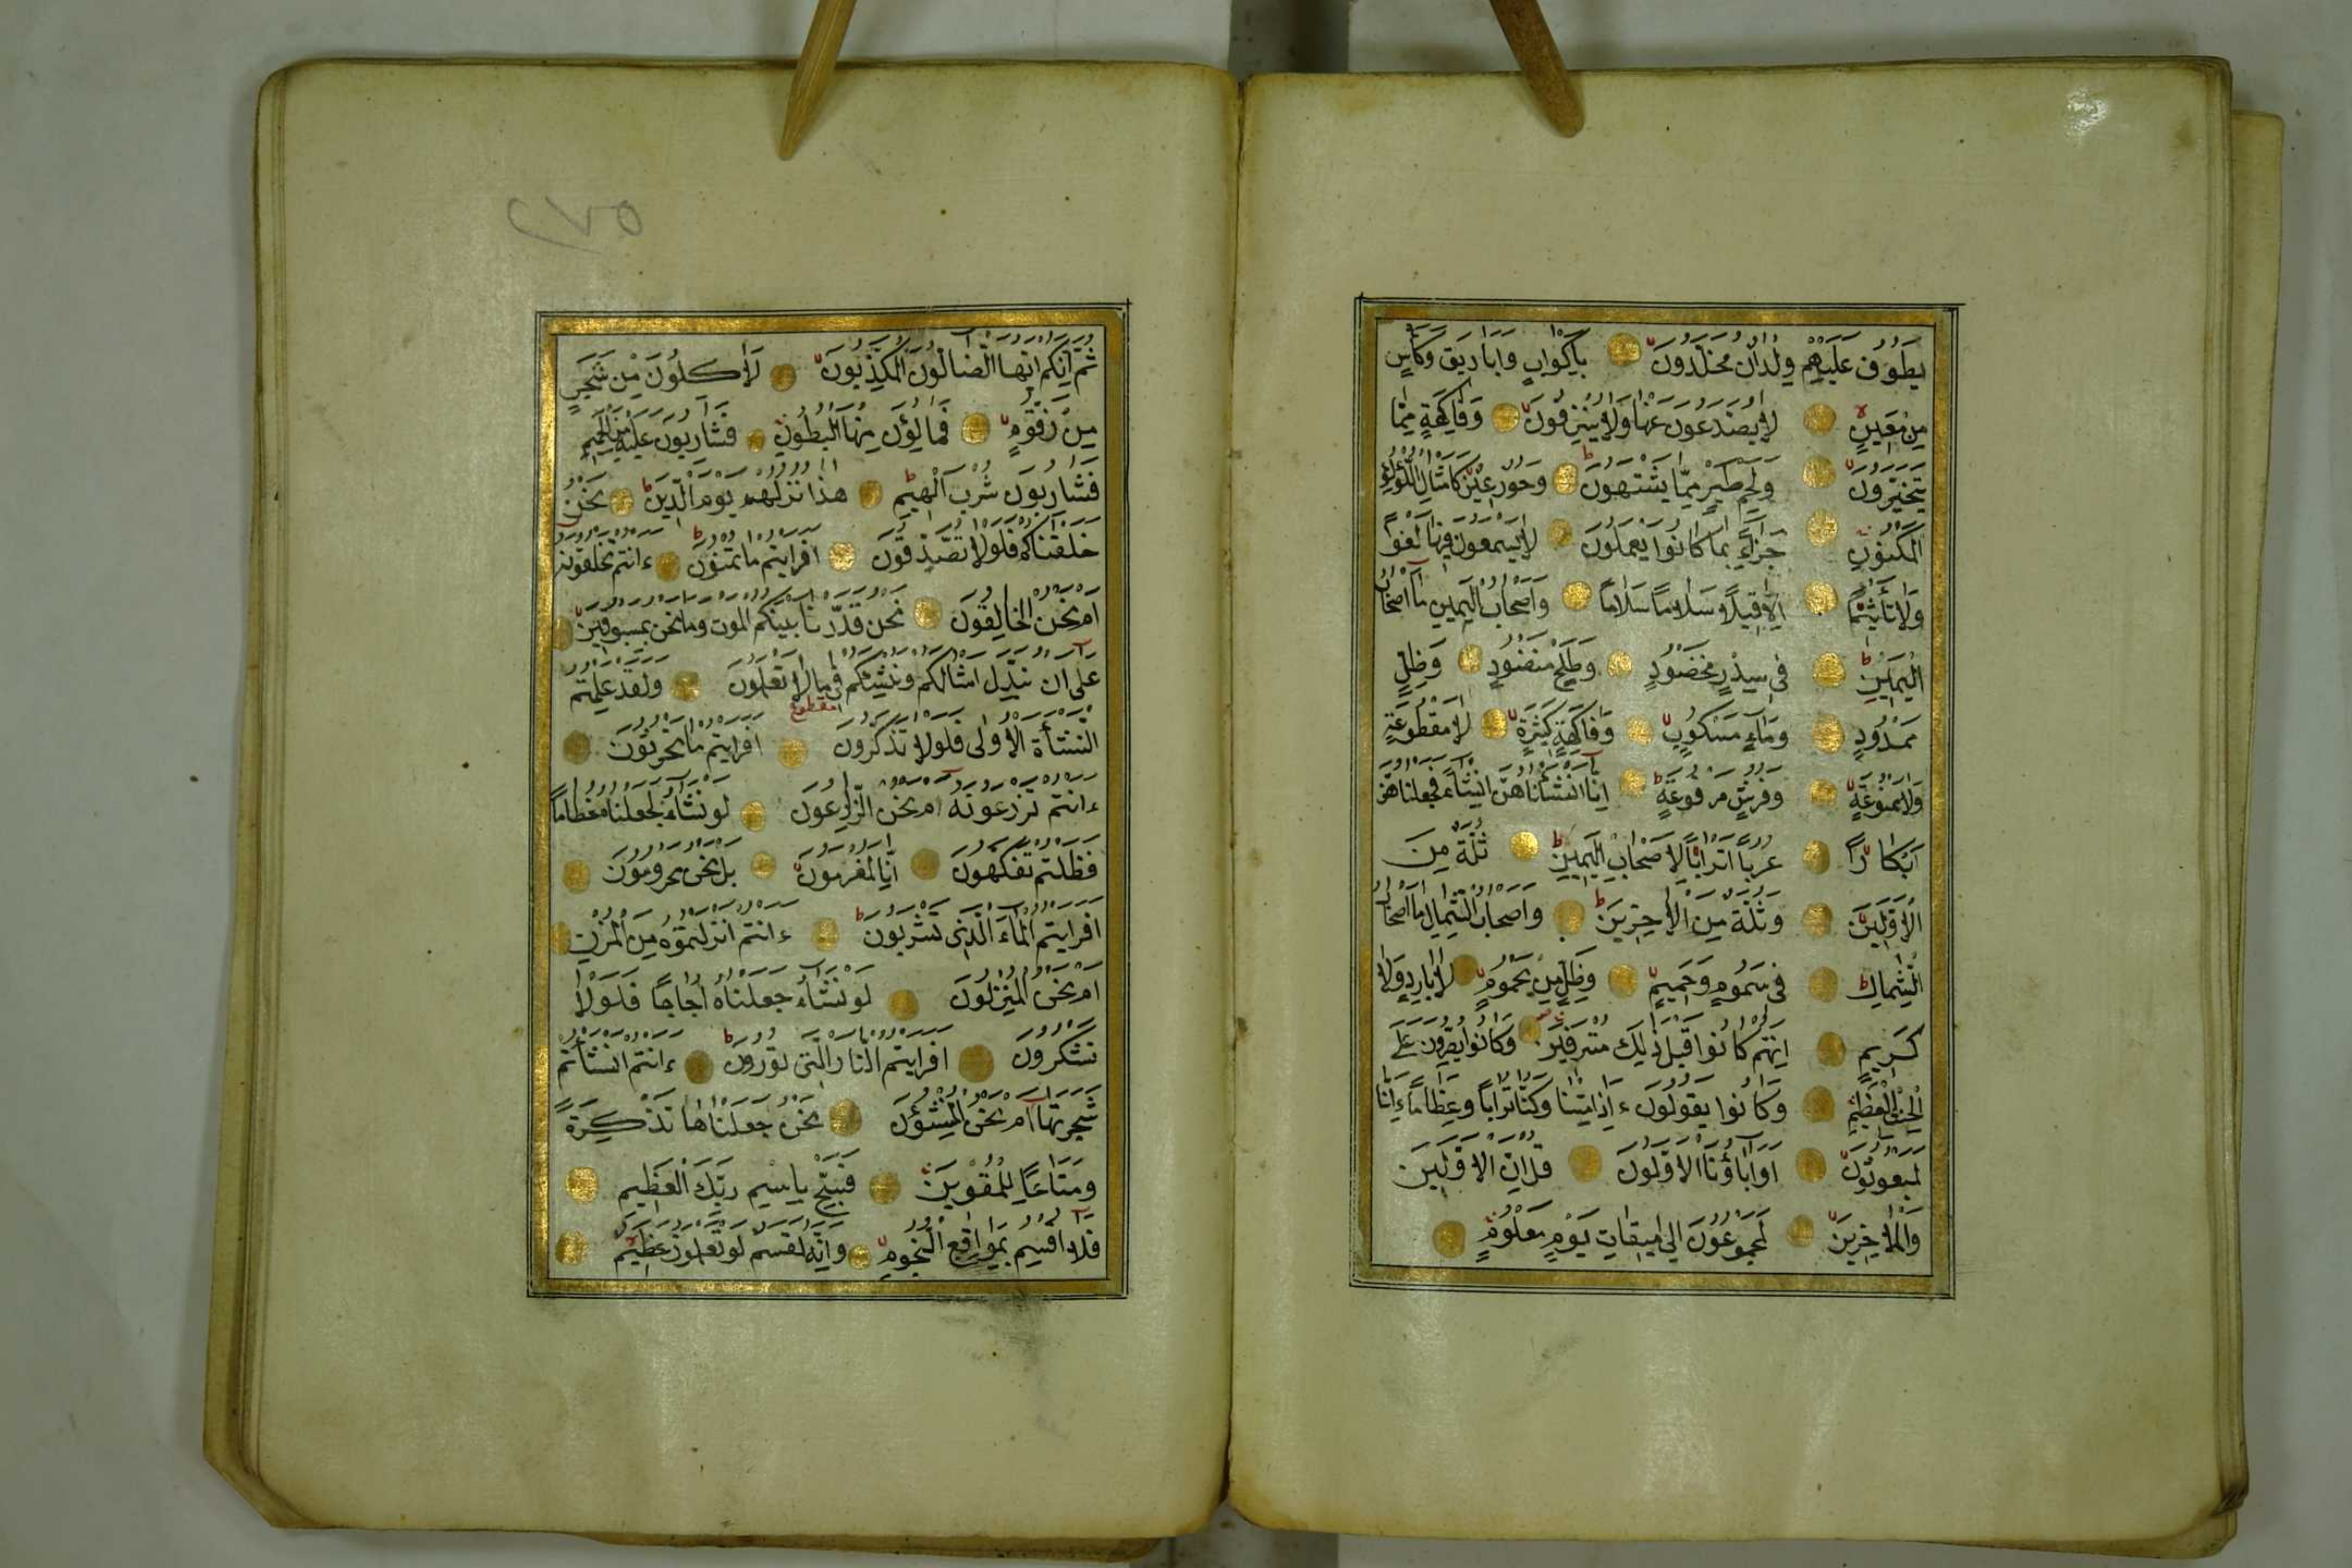 يطوف عليهم ولدان مخلدون باكواب واباريق وكأس
من معين لا يصدعون عنها ولا ينزفون وفاكهة مما
يتخيرون ولحم طير مما يشتهون وحور عين كامثال اللؤلؤ
المكنون جزاء بما كانوا يعملون لا يسمعون فيها لغوا
ولا تأثيما الا قيلا سلاما سلاما واصحاب اليمين ما اصحاب
اليمين في سدر مخضود وطلح منضود وظل
ممدود وماء مسكوب وفاكهة كثيرة لا مقطوعة
ولا ممنوعة وفرش مرفوعة انا انشأناهن انشاء فجعلناهن
ابكارا عربا اترابا لاصحاب اليمين ثلة من
الاولين وثلة من الاخرين واصحاب الشمال ما اصحاب
الشمال في سموم وحميم وظل من يحموم لا بارد ولا
كريم انهم كانوا قبل ذلك مترفين وكانوا يصرون على
الحنث العظيم وكانوا يقولون ءاذا متنا وكنا ترابا وعظاما ءانا
لمبعوثون اواباؤنا الاولون قل ان الاولين
والاخرين لمجموعون الى ميقات يوم معلوم
٢٧٥
ثم انكم ايها الضالون المكذبون لاكلون من شجر
من زقوم فمالؤن منها البطون فشاربون عليه من الحميم
فشاربون شرب الهيم هذا نزلهم يوم الدين نحن
خلقناكم فلولا تصدقون افرايتم ما تمنون ءانتم تخلقونه
ام نحن الخالقون نحن قدرنا بينكم الموت وما نحن بمسبوقين
على ان نبدل امثالكم وننشئكم في ما لا تعلمون ولقد علمتم
مقطوع
النشأة الاولى فلولا تذكرون افرايتم ما تحرثون
ءانتم تزرعونه ام نحن الزارعون لو نشاء لجعلناه حطاما
فظلتم تفكهون انا لمغرمون بل نحن محرومون
افرايتم الماء الذي تشربون ءانتم انزلتموه من المزن
ام نحن المنزلون لو نشاء جعلناه اجاجا فلولا
تشكرون افرايتم النار التي تورون ءانتم انشأتم
شجرتها ام نحن المنشؤن نحن جعلناها تذكرة
ومتاعا للمقوين فسبح باسم ربك العظيم
فلا اقسم بمواقع النجوم وانه لقسم لو تعلمون عظيم